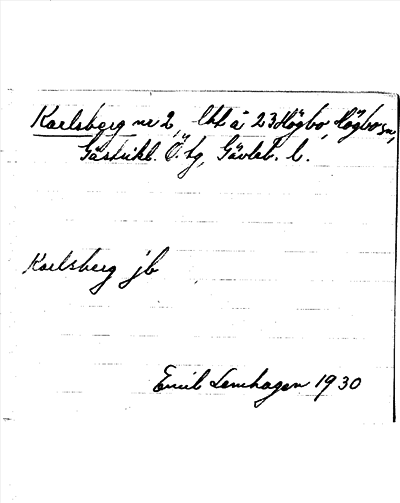 Karlsberg nr 2, lht å 23 Högbo, Högbo sn,
Gästrikl. Ö. tg, Gävleb. l.
Karlsberg jb
Emil Lenhagen 1930